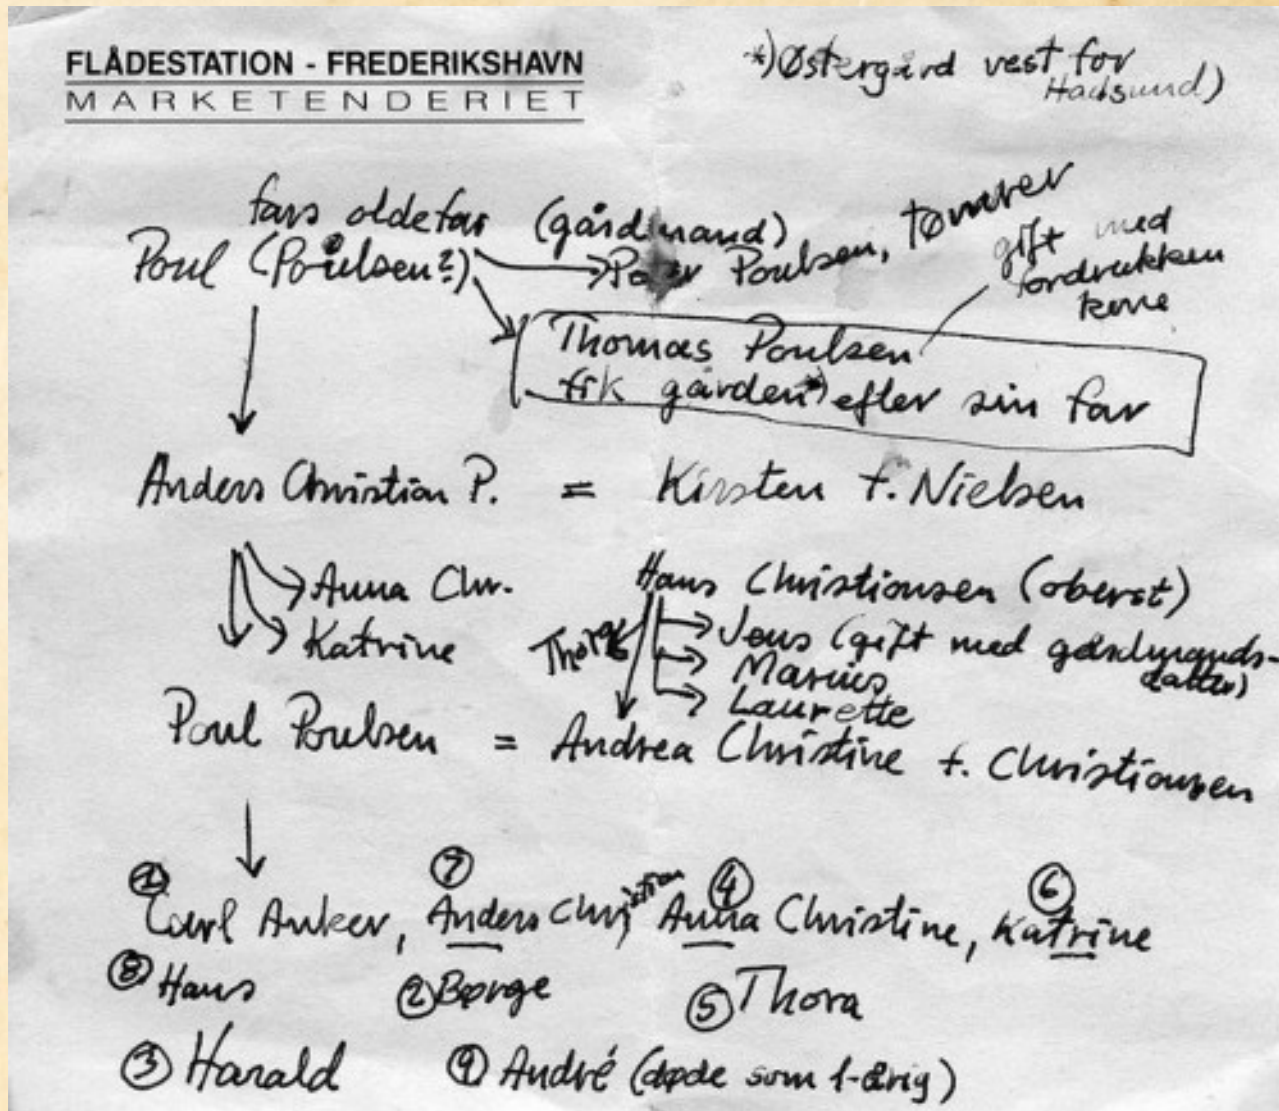 FLÅDESTATION - FREDERIKSHAVN
MARKETENDERIET
*) Østergård vest for
Hadsund)
fars oldefar (gårdmand)
Poul (Poulsen?) Poulsen, tømrer
gift med
fordrukken
kone
Thomas Poulsen
fik gården*) efter sin far
Anders Christian P. = Kirsten f. Nielsen
Anna Chr.
Katrine
Hans Christiansen (oberst)
Thora
Jens (gift med gårdmands-
datter)
Marius
Laurette
Poul Poulsen = Andrea Christine f. Christiansen
① Carl Anker, ⑦ Anders Christian ④ Anna Christine, ⑥ Katrine
⑧ Hans ② Børge ⑤ Thora
③ Harald ⑨ André (døde som 1-årig)